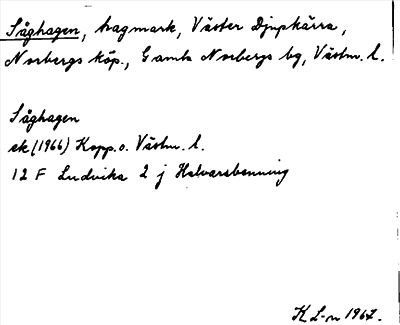 Såghagen, hagmark, Väster Djupkärra,
Norbergs köp., Gamla Norbergs bg, Västm. l.
Såghagen
ek (1966) Kopp. o. Västm. l.
12 F Ludvika 2 j Halvarsbenning
K L-n 1967.